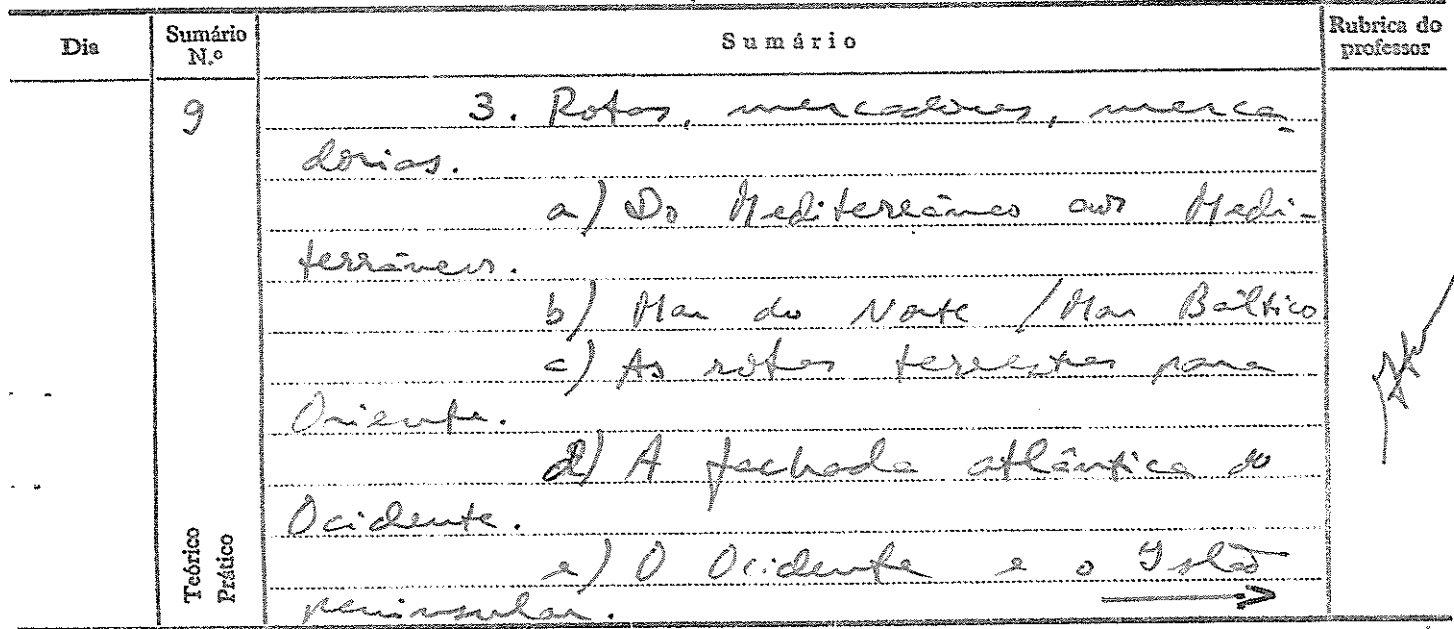 Dia
Sumário
N.º
Sumário
Rubrica do
professor
9
3. Rotas, mercadores, merca
dorias.
a) Do Mediterrâneo aos Medi-
terrâneos.
b) Mar do Norte / Mar Báltico
c) As rotas terrestres para
Oriente.
d) A fachada atlântica do
Ocidente.
e) O Ocidente e o Islão
peninsular.
Teórico
Prático